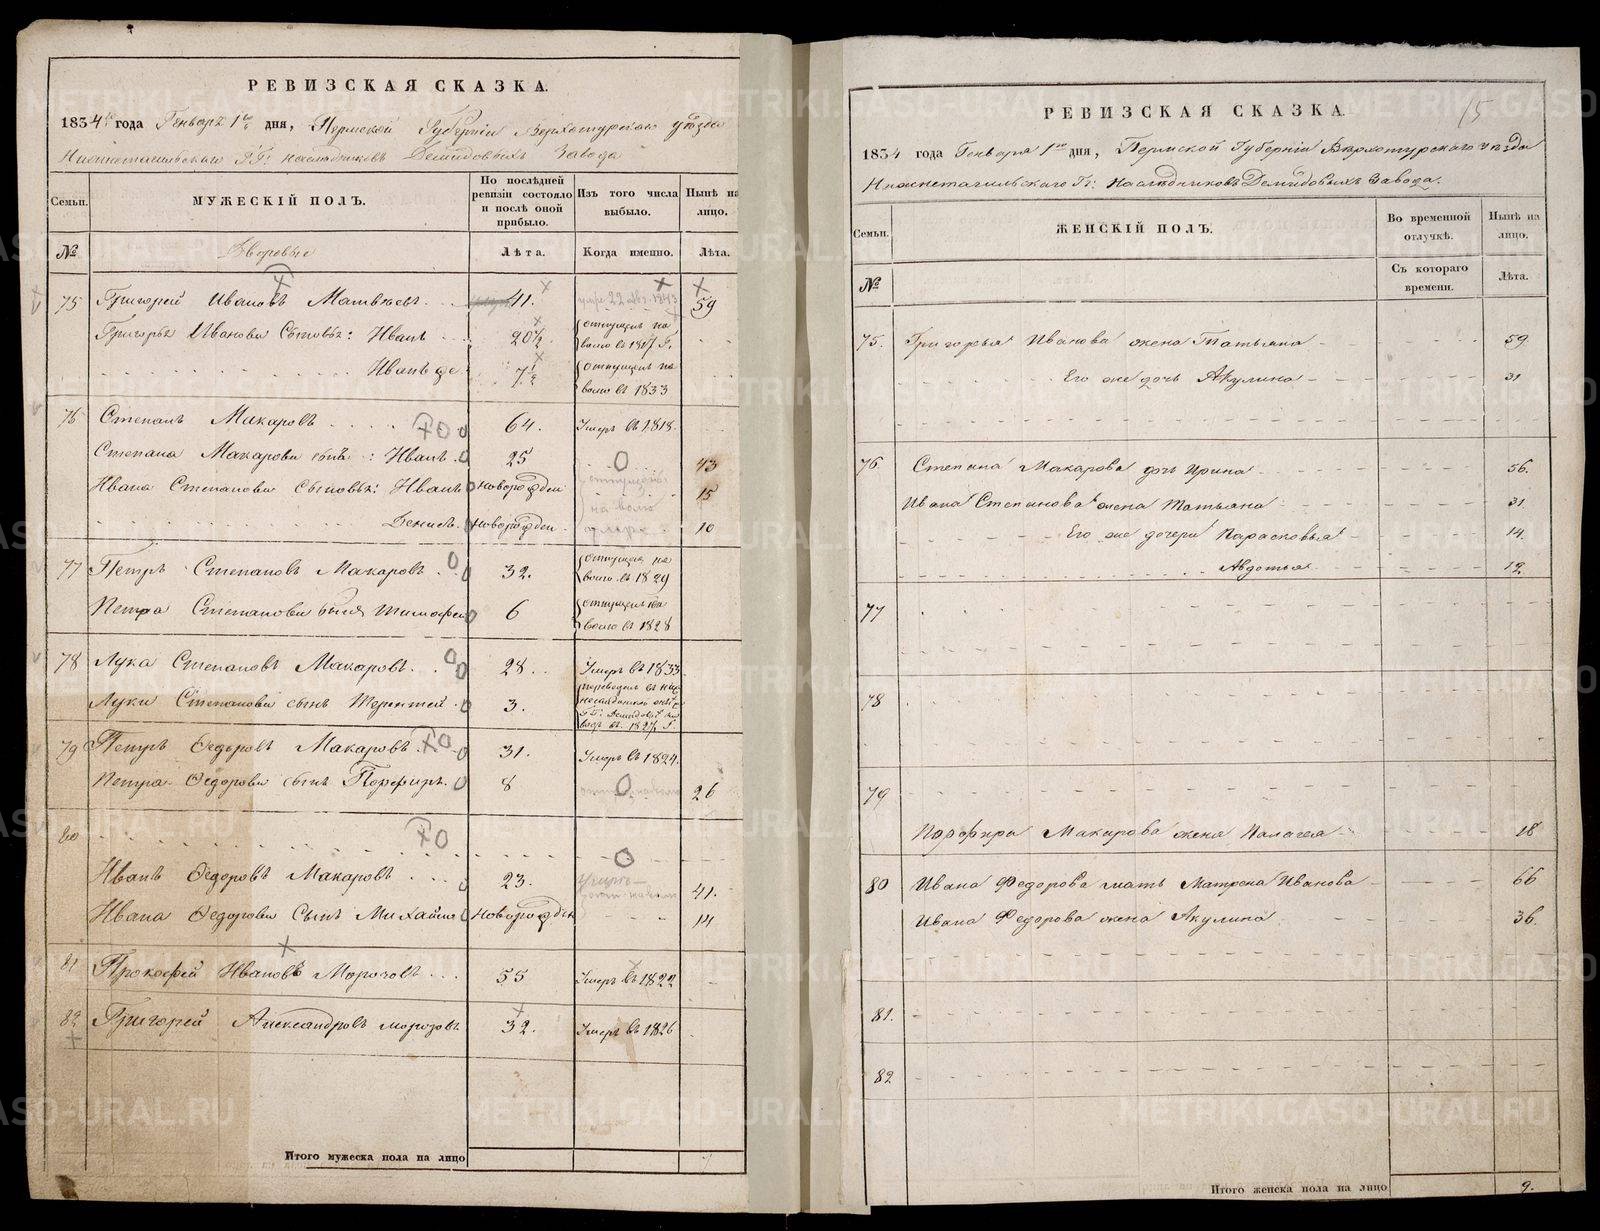 РЕВИЗСКАЯ СКАЗКА.
1834 года Генваря 1го дня, Пермской Губернiи Верхотурскаго уѣзда
Нижнетагильскаго Гг: наслѣдниковъ Демидовыхъ Завода
Семьи. МУЖЕСКIЙ ПОЛЪ. По послѣдней ревизiи состояло и послѣ оной прибыло. Изъ того числа выбыло. Нынѣ на лицо.
№ Дворовые Лѣта. Когда именно. Лѣта.
75 Григорей Ивановъ Матвѣевъ 41. 59
Григорья Иванова Сыновья: Иванъ 20½ отпущенъ на волю въ 1817 г.
Иванъ же 7½ отпущенъ на волю въ 1833
76 Степанъ Макаровъ 64. Умеръ въ 1818.
Степана Макарова сынъ: Иванъ 25 43
Ивана Степанова Сыновья: Иванъ новорожден 15
Денисъ новорожден 10
77 Петръ Степановъ Макаровъ 32. отпущен на волю въ 1829
Петра Степанова сынъ Тимофей 6 отпущенъ на волю въ 1828
78 Лука Степановъ Макаровъ 28. Умеръ въ 1833
Луки Степанова сынъ Терентей 3.
79 Петръ Федоровъ Макаровъ 31. Умеръ въ 1824.
Петра Федорова сынъ Порфиръ. 8 26
80
Иванъ Федоровъ Макаровъ 23. 41.
Ивана Федорова Сынъ Михайло Новорожден 14
81 Прокофей Ивановъ Морозовъ 55 Умеръ въ 1822
82 Григорей Александровъ морозовъ 32. Умеръ въ 1826
Итого мужеска пола на лицо 7
15
РЕВИЗСКАЯ СКАЗКА.
1834 года Генваря 1го дня, Пермской Губернiи Верхотурскаго уѣзда
Нижнетагильскаго Гг: Наслѣдниковъ Демидовыхъ Завода.
Семьи. ЖЕНСКIЙ ПОЛЪ. Во временной отлучкѣ. Нынѣ на лицо.
№ Съ котораго времени. Лѣта.
75. Григорья Иванова жена Татьяна 59.
Его же дочь Акулина 31
76. Степана Макарова дочь Ирина 56.
Ивана Степанова жена Татьяна 31
Его же дочери Парасковья 14.
Авдотья 12
77
78
79
Порфира Макарова жена Палагея 18
80 Ивана Федорова мать Матрена Иванова 66
Ивана Федорова жена Акулина 36.
81.
82
Итого женска пола на лицо 9.
METRIKI.GASO-URAL.RU